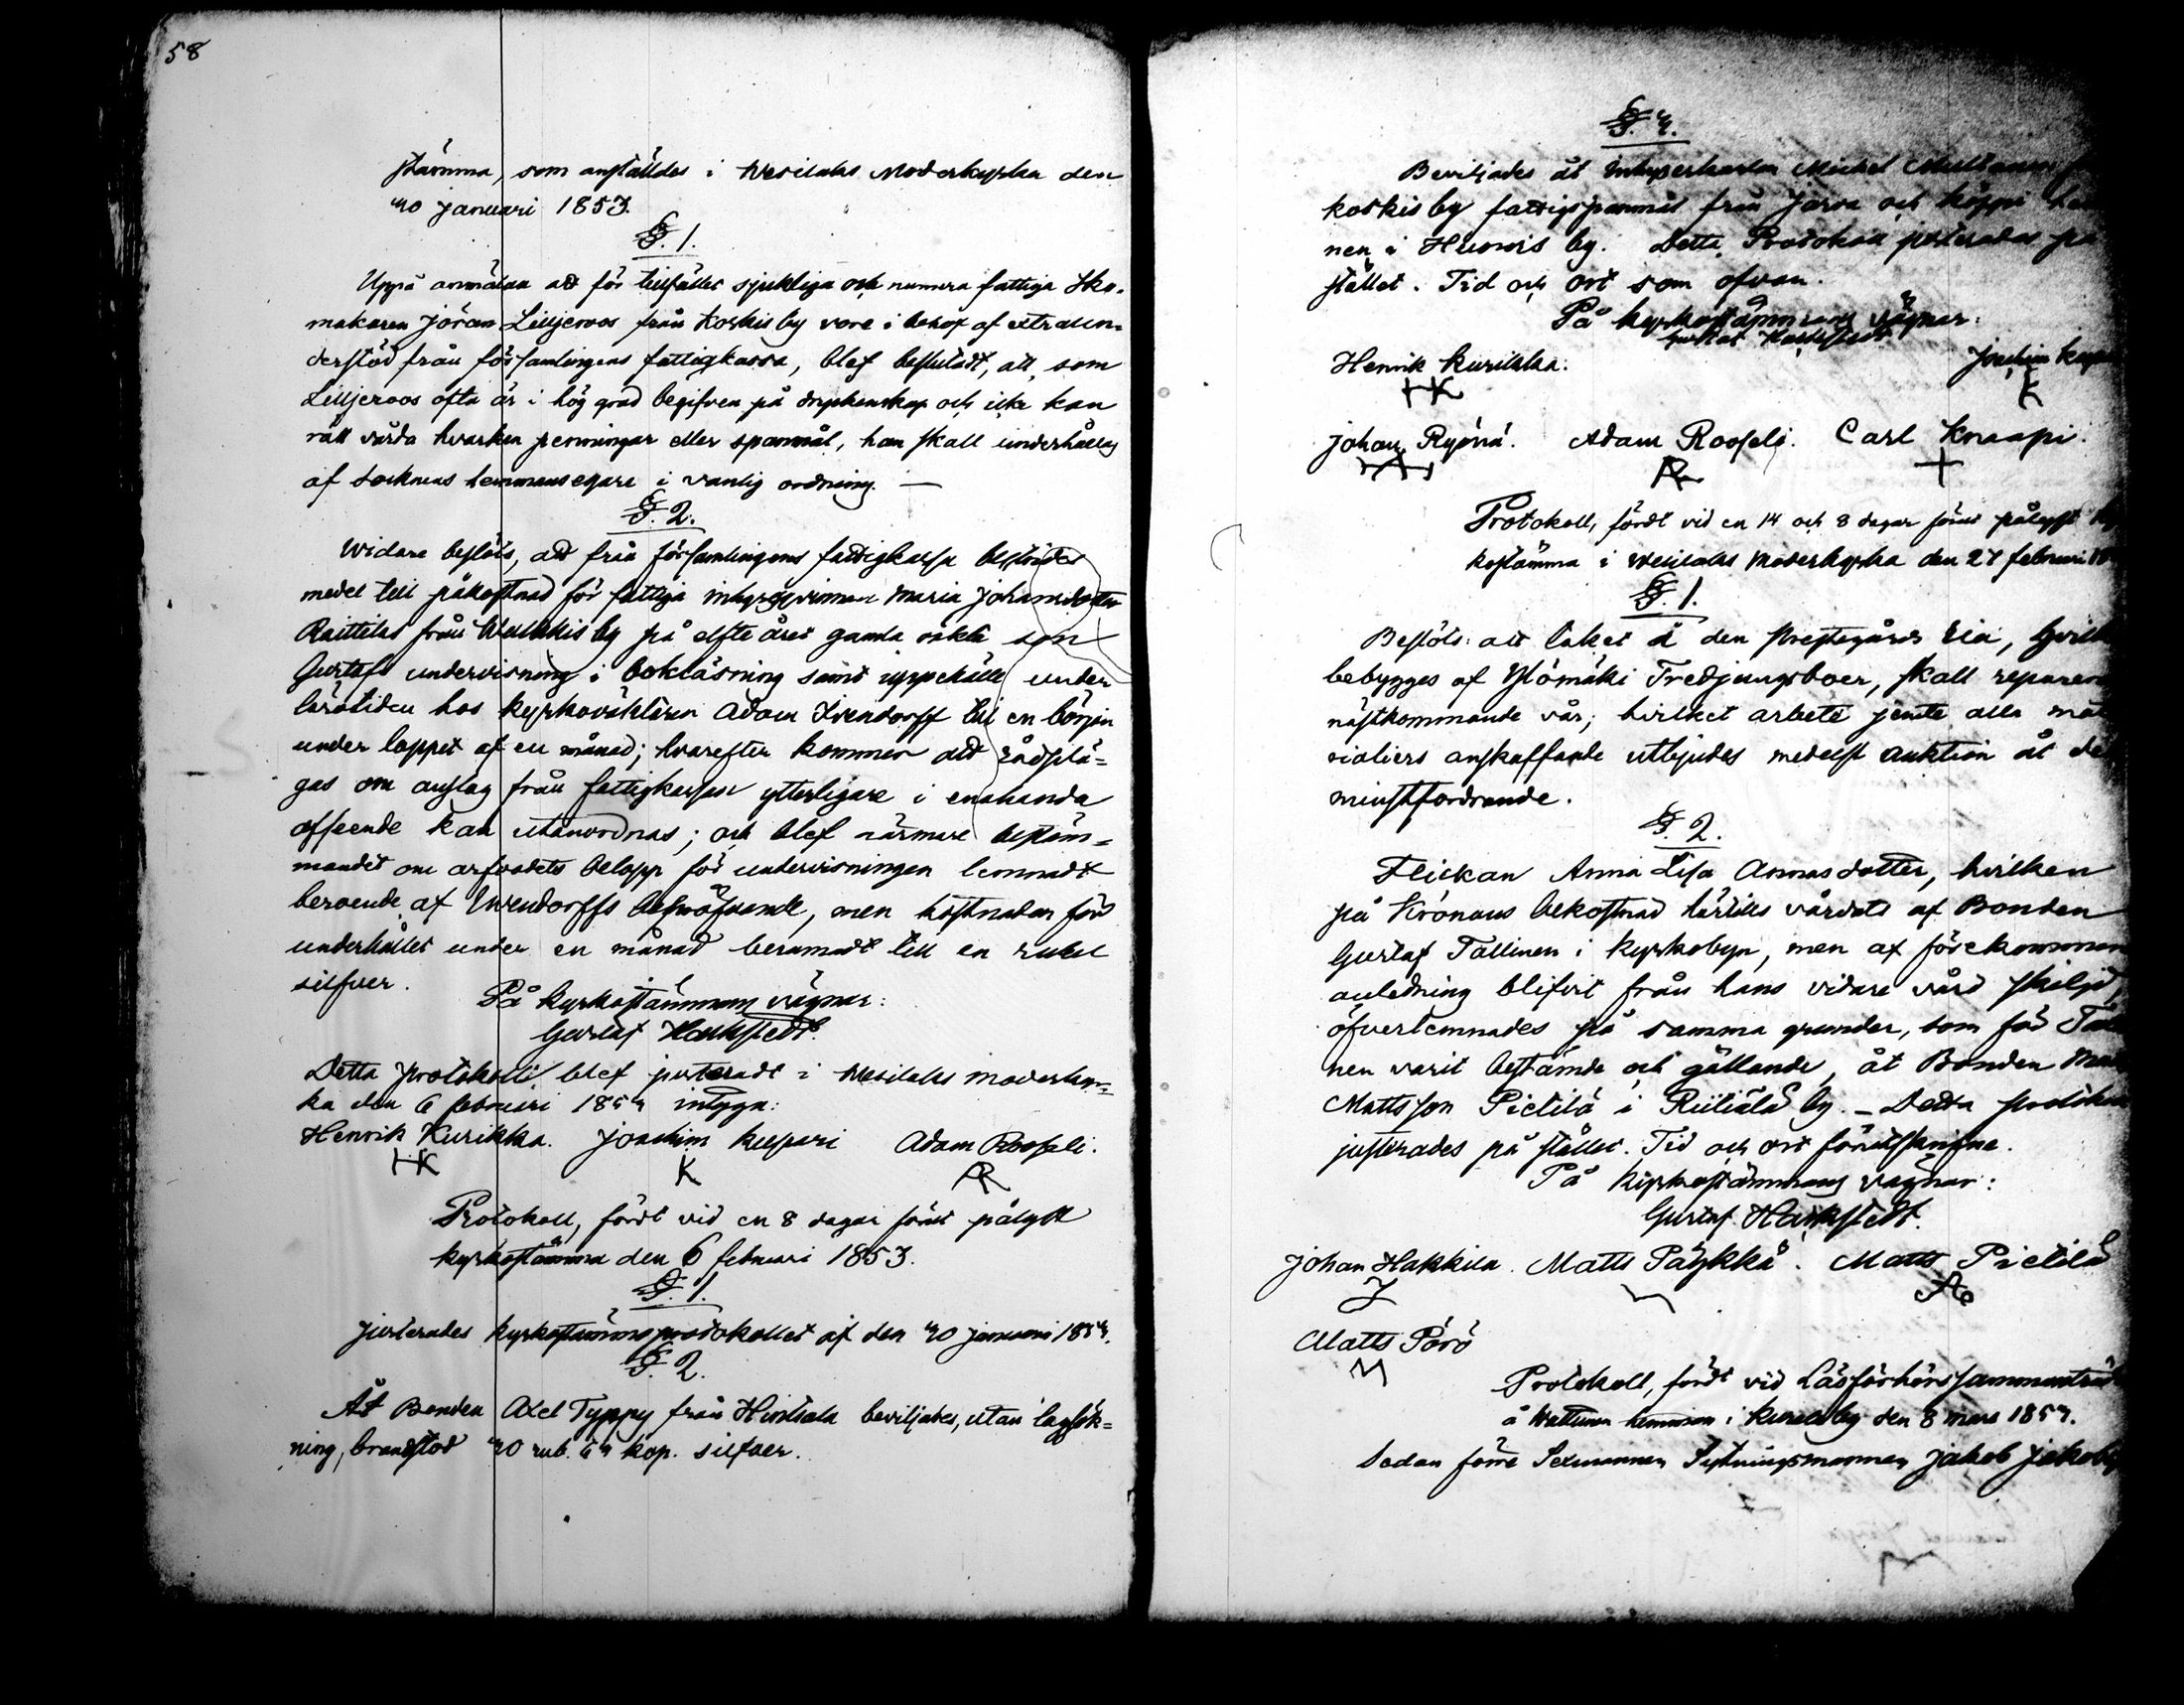 58
stämma, som anställdes i Wesilaks Moderkyrka den
30 januari 1853.
§. 1.
Uppå anmälan att för tillfället sjuklige och numera fattige Sko-
makaren Jöran Liljeroos från Koskis by vore i behof af extra un-
derstöd från församlingens fattigkassa, blef beslutadt, att, som
Liljeroos ofta är i hög grad begifven på dryckenskap och icke kan
rätt vårda hvarken penningar eller spanmål, han skall underhållas
af Socknens hemmansegare i vanlig ordning. —
§. 2.
Widare beslöts, att från församlingens fattigkassa bestrides
medel till påkostnad för fattiga inhysqvinnan Maria Johansdotter
Raittilas från by på elfte året gamla oäkta son
Gustafs undervisning i bokläsning samt uppehälle under
lärotiden hos kyrkoväktaren Adam Ivendorff till en början
under loppet af en månad; hvarefter kommer att rådplä-
gas om anslag från fattigkassan ytterligare i enahanda
afseende kan utanordnas; och blef närmare bestäm-
mandet om arfvodets belopp för undervisningen lemnadt
beroende af Ivendorffs bepröfvande, men kostnaden för
underhållet under en månad beramadt till en rubel
silfver.
På kyrkostämmans vägnar:
Gustaf Hackstedt.
Detta protokoll blef justeradt i Wesilaks moderkyr-
ka den 6 februari 1853 intyga:
Henrik Kurikka. Joachim Kuspari Adam Roofeli.
HK K AR
Protokoll, fördt vid en 8 dagar förut pålyst
kyrkostämma den 6 februari 1853.
§. 1.
Justerades kyrkostämmoprotokollet af den 30 januari 1853.
§. 2.
Åt Bonden Axel Typpy från Hinsala beviljades, utan lagsök-
ning, brandstod 30 rub. 63 kop. silfver.
§. 3.
Beviljades åt Inhyserkarlen Michel
Koskis by fattigspanmål från Jarva ochKöppi
nen i by. Detta Protokoll justerades på
stället. Tid och ort som ofvan.
På kyrkostämmans vägnar:
Gustaf Hackstedt
Henrik Kurikka. Joachim
HK K
Johan Ryönä. Adam Roofeli. Carl Knaapi.
AR +
Protokoll, fördt vid en 14 och 8 dagar förut pålyst
kostämma i Wesilaks Moderkyrka den 27 februari
§. 1.
Beslöts: att taket å den Prestegårds ria,
bebygges af Ylömäki Tredjungsboer, skall
nästkommande vår; hvilket arbete jemte alla
rialiers anskaffande utbjudes medelst auktion åt
minstfordrande.
§. 2.
Flickan Anna Lisa Annasdotter, hvilken
på Kronans bekostnad härtills vårdats af Bonden
Gustaf Tallinen i Kyrkobyn, men af förekommen
anledning blifvit från hans vidare vård skiljd,
öfverlemnades på samma grunder, som för
nen varit bestämde och gällande, åt Bonden
Mattsson Pietilä i Riitiälä by. — Detta
justerades på stället. Tid och ort förutskrifne.
På Kyrkostämmans vägnar:
Gustaf Hackstedt.
Johan Hakkila. Matts Päykkä. Matts Pietilä
Matts Pörö
Protokoll, fördt vid Läsförhörs
å hemman i by den 8 mars 1853.
Sedan förre Sexmannen, Fjerdingsmannen Jakob